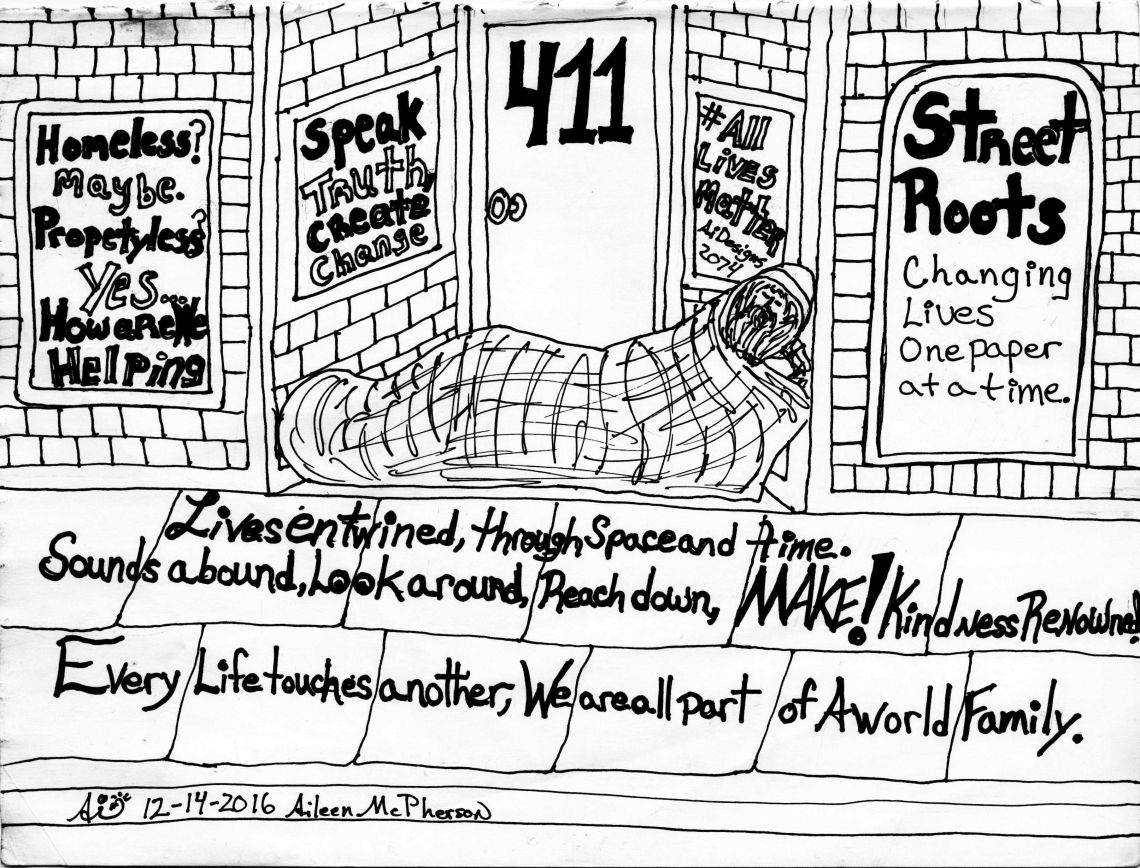 Homeless?
Maybe.
Propetyless?
Yes...
How are We
Helping
Speak
Truth,
Create
Change
411
#All
Lives
Matter
AiDesigns
2074
Street
Roots
Changing
Lives
One paper
at a time.
Lives entwined, through Space and time.
Sounds abound, Look around, Reach down, MAKE! Kindness Renowned!
Every Life touches another, We are all part of A world Family.
AiD 12-14-2016 Aileen McPherson